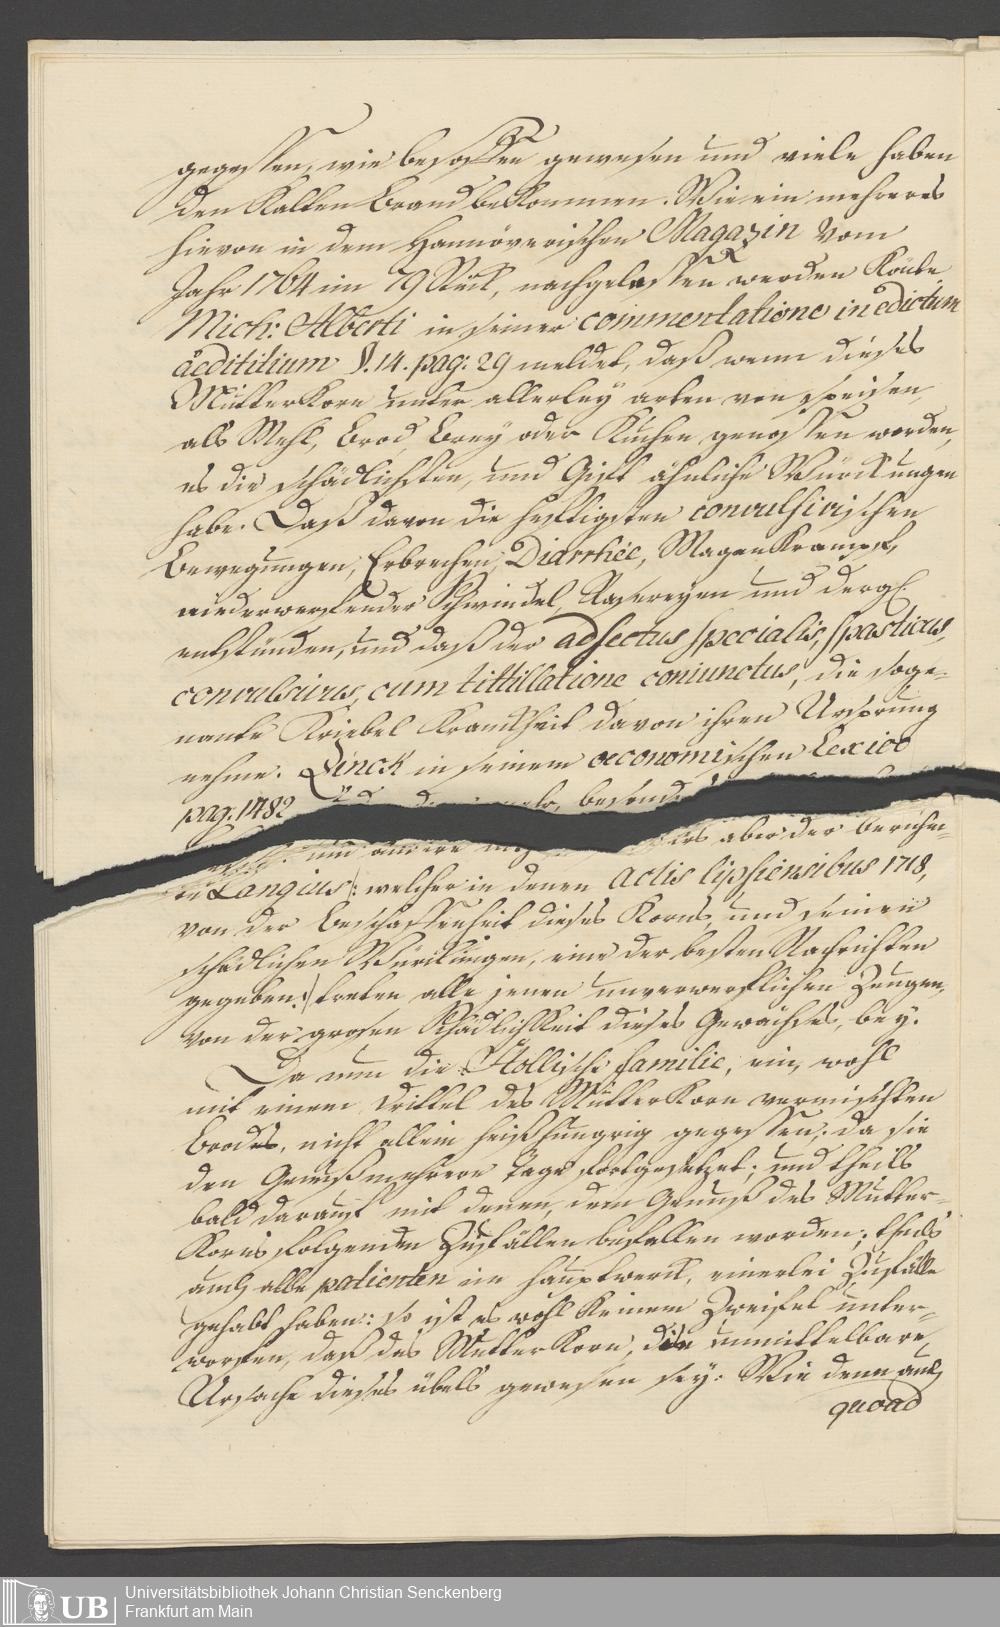 gegessen, wie besoffen gewesen und viele haben
den Kalten Brand bekommen. Wie ein mehreres
hievon in dem Hannöverischen Magazin vom
Jahr 1764 im 79 Stück, nachgelesen werden könte.
Mich: Alberti in seiner commentatione in edictum
aedititium §. 14. pag: 29 meldet, daß wenn dieses
MutterKorn unter allerley arten von speisen
als Mehl, Brod, Brey oder Kuchen genossen worden,
es die schädlichsten, und Gift ähnliche Würckungen
habe. Daß davon die hefftigsten convulsivischen
Bewegungen, Erbrechen, Diarrhée, MagenKrampf,
niederwerffender Schwindel, Rasereyen und dergl.
entstünden, und daß der adfectus specialis, spasticus,
convulsivus, cum tittillatione coniunctus, die soge-
nante Kriebel Kranckheit davon ihren Ursprung
nehme. Zinck in seinem oeconomischen Lexico
pag. 1782
und andere aber der berühm-
te Langius /: welcher in denen Actis lipsiensibus 1718,
von der Beschaffenheit dieses Korns und seinen
schädlichen Würckungen, eine der besten Nachrichten
gegeben :/ treten alle jenen unverwerflichen Zeugen,
von der grosen Schädlichkeit dieses Gewächses, bey.
Da nun die Hollische familie, ein, wohl
mit einem drittel des MutterKorn vermischten
Brodes, nicht allein heißhungrig gegessen; da sie
den Genuß mehrere Tage fortgesetzet; und theils
bald darauf mit denen, dem Genuß des Mutter-
Korns folgenden Zufällen befallen worden; theils
auch alle patienten im hauptwerck, einerlei Zufälle
gehabt haben: so ist es wohl keinem Zweifel unter-
worffen, daß das MutterKorn, die unmittelbare
Ursache dieses übels gewesen sey. Wie denn auch
quoad
UB
Universitätsbibliothek Johann Christian Senckenberg
Frankfurt am Main